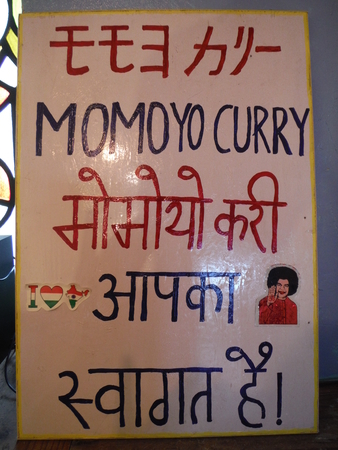 モモヨ カリー
MOMOYO CURRY
मोमोयो करी
I
आपका
स्वागत है!